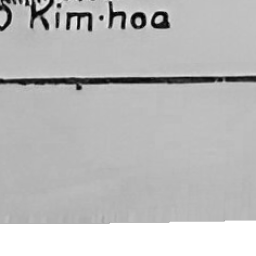 Kim·hoa